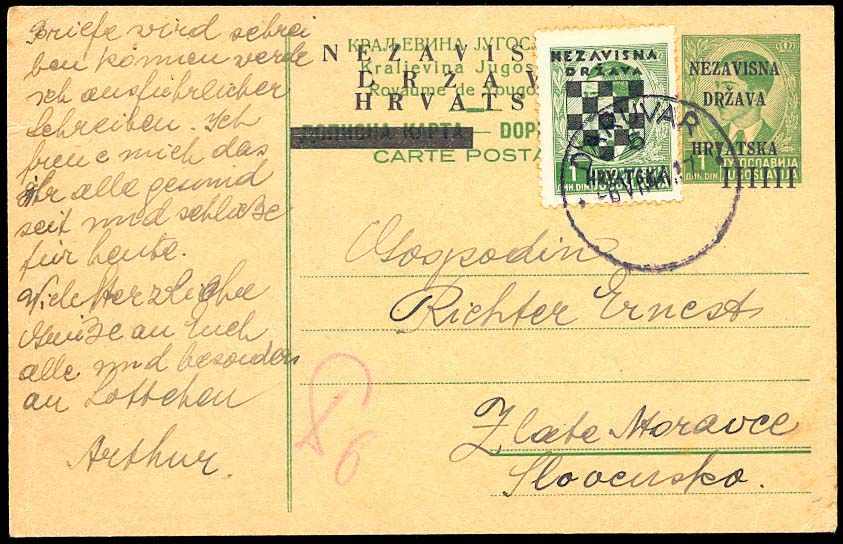 Briefe wird schrei
ben können werde
ich ausführlicher
schreiben. Ich
freue mich das
ihr alle gesund
seit und schließe
für heute.
Viele Herzliche
Grüße an Euch
alle und besonders
an Lottchen
Arthur.
КРАЉЕВИНА ЈУГОСЛ
Kraljevina Jugos
Royaume de Yougo
NEZAVIS
DRŽAV
HRVATS
ДОПИСНА КАРТА — DOP
CARTE POSTA
NEZAVISNA
DRŽAVA
HRVATSKA
1
ДИН. DIN.
DARUVAR
NEZAVISNA
DRŽAVA
HRVATSKA
1 ЈУГОСЛАВИЈА
ДИН. DIN. JUGOSLA
Gospodin
Richter Ernest
Zlate Moravce
Slovensko.
6